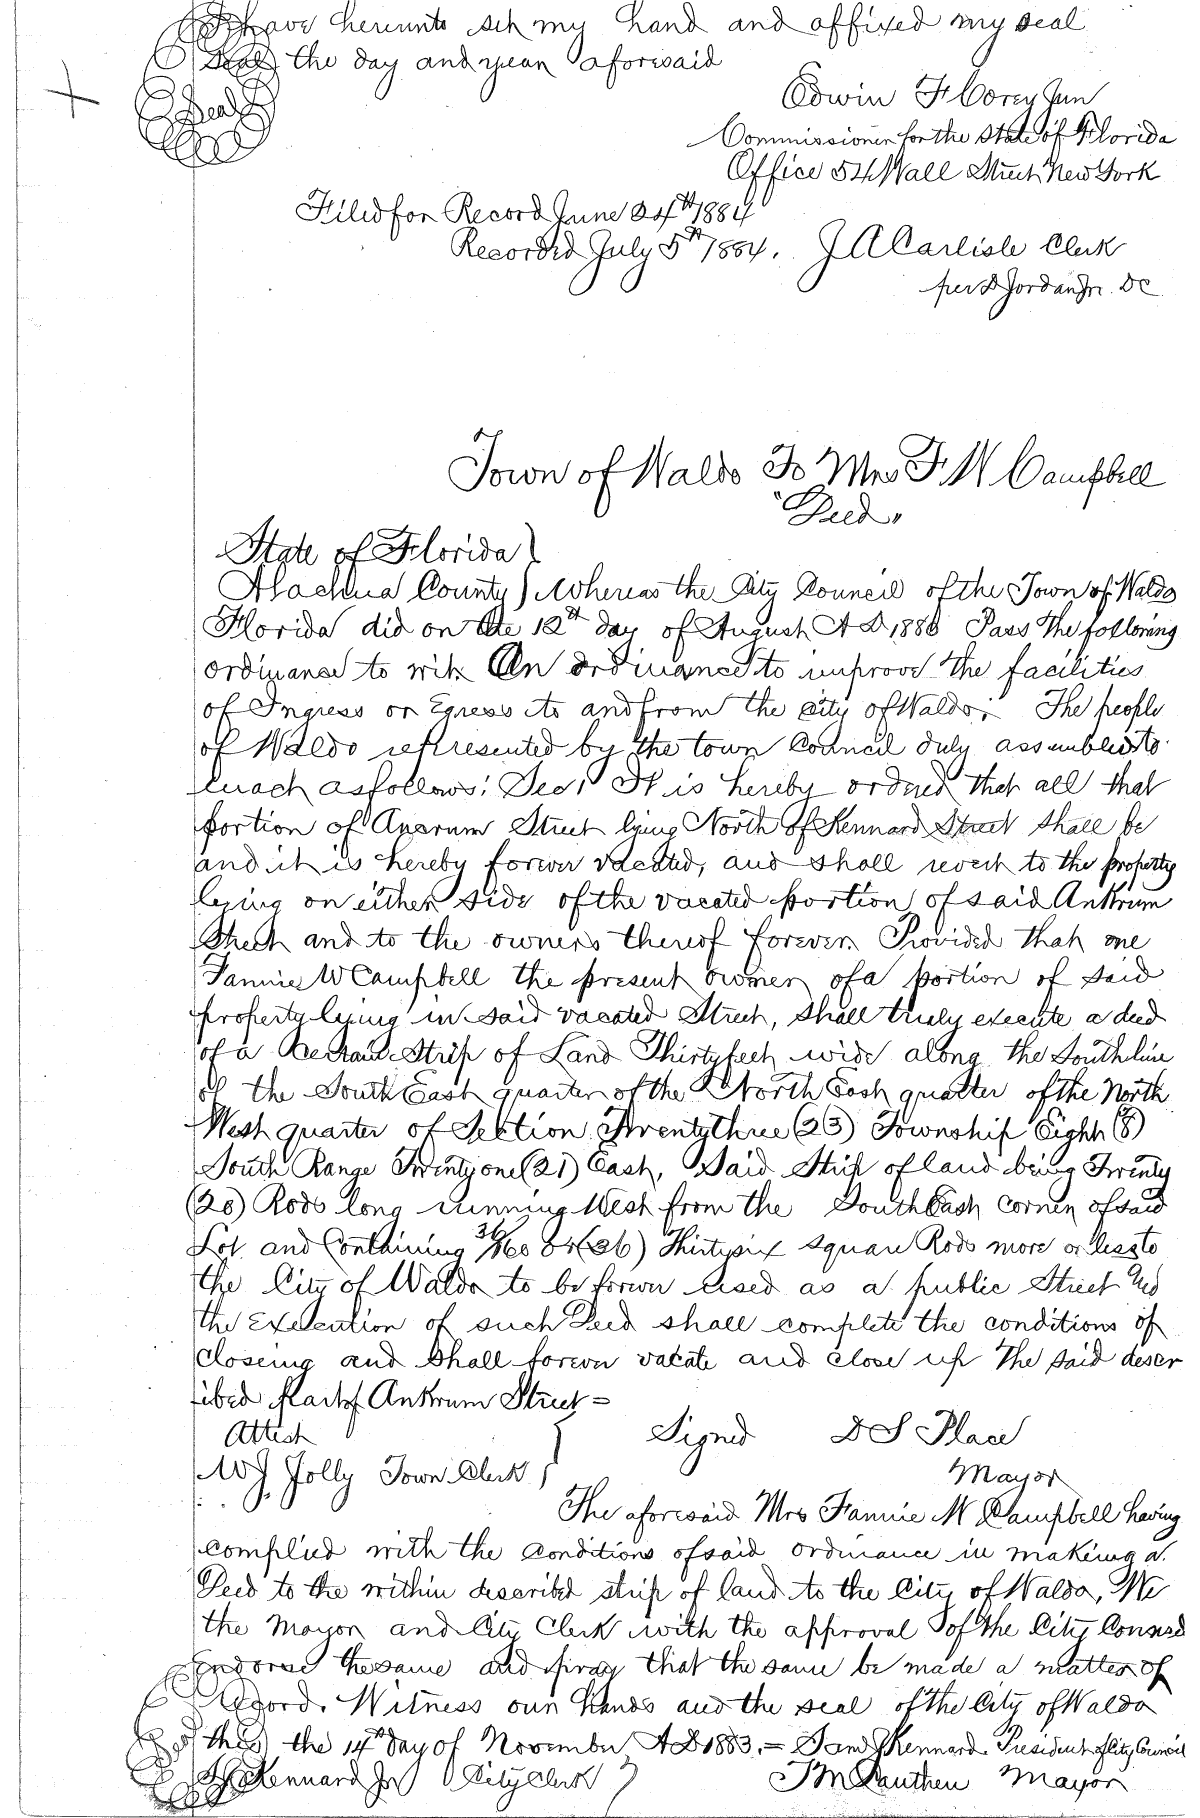 I have hereunto set my hand and affixed my seal
Seal the day and year aforesaid
Seal
Edwin F Corey Jun
Commissioner for the State of Florida
Office 54 Wall Street New York
Filed for Record June 24th 1884
Recorded July 5th 1884. J A Carlisle Clerk
per D Jordan Jr. DC
Town of Waldo To Mrs F W Campbell
"Deed"
State of Florida )
Alachua County ) Whereas the City Council of the Town of Waldo
Florida did on the 12th day of August A D 1880 Pass The following
ordinance to wit. An ordinance to improve the facilities
of Ingress or Egress to and from the city of Waldo; The people
of Waldo represented by the town Council duly assembled to
enact as follows: Sec 1 It is hereby ordered that all that
portion of Ancrum Street lying North of Kennard Street shall be
and it is hereby forever vacated, and shall revert to the property
lying on either side of the vacated portion of said Ankrum
Street and to the owners thereof forever. Provided that one
Fannie W Campbell the present owner of a portion of said
property lying in said vacated Street, shall truly execute a deed
of a certain Strip of Land Thirty feet wide along the South line
of the South East quarter of the North East quarter of the North
West quarter of Section Twenty three (23) Township Eight (8)
South Range Twenty one (21) East, Said Strip of land being Twenty
(20) Rods long running West from the South East corner of said
Lot and Containing 36/160 or (36) Thirty six square Rods more or less to
the City of Waldo to be forever used as a public Street And
the Execution of such Deed shall complete the conditions of
closeing and shall forever vacate and close up The said descr
ibed part of Ankrum Street =
Attest Signed D S Place
W J Jolly Town Clerk ) Mayor
The aforesaid Mrs Fannie W Campbell having
complied with the conditions of said ordinance in makeing a
Deed to the within described strip of land to the City of Waldo, We
the Mayor and City Clerk with the approval of the City Council
Endorse the same and pray that the same be made a matter of
Record. Witness our hands and the seal of the City of Waldo
this the 14th day of November A D 1883. = Saml J Kennard President of City Council
Kennard Jr City Clerk ) J M Lauthen Mayor